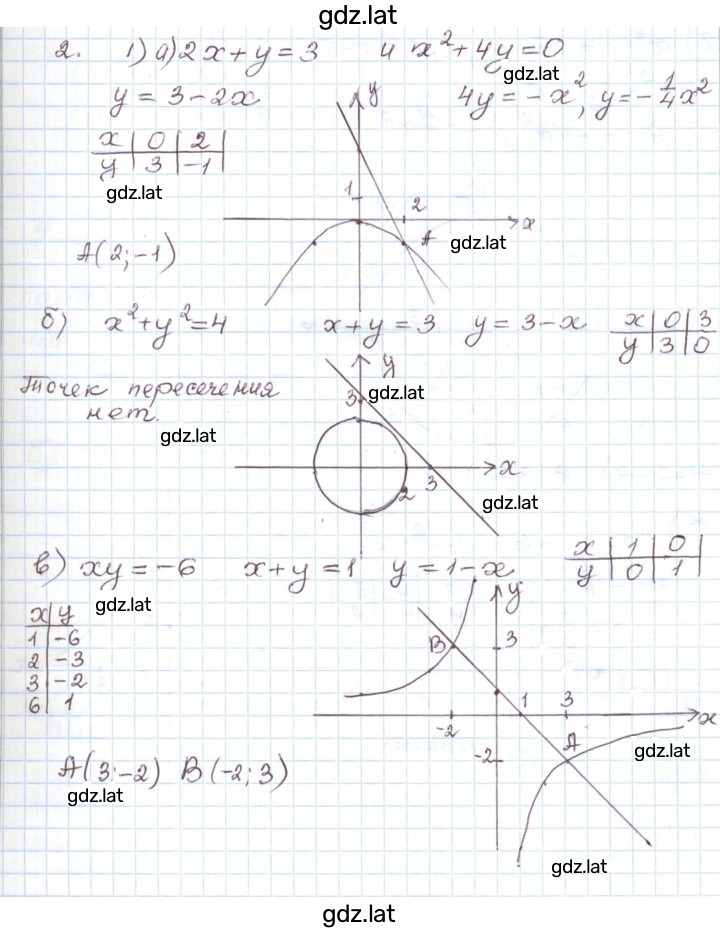 gdz.lat
2. 1) а) 2x+y=3 и x²+4y=0
gdz.lat
y = 3-2x
4y = -x², y = -1/4x²
x | 0 | 2
y | 3 | -1
gdz.lat
y
1
2
x
A
gdz.lat
A(2;-1)
б) x²+y²=4 x+y=3 y=3-x
x | 0 | 3
y | 3 | 0
Точек пересечения
нет.
gdz.lat
y
3
gdz.lat
x
2
3
gdz.lat
в) xy=-6 x+y=1 y=1-x
x | 1 | 0
y | 0 | 1
gdz.lat
x | y
1 | -6
2 | -3
3 | -2
6 | 1
y
B
3
1
3
x
-2
A
-2
gdz.lat
A(3;-2) B(-2;3)
gdz.lat
gdz.lat
gdz.lat